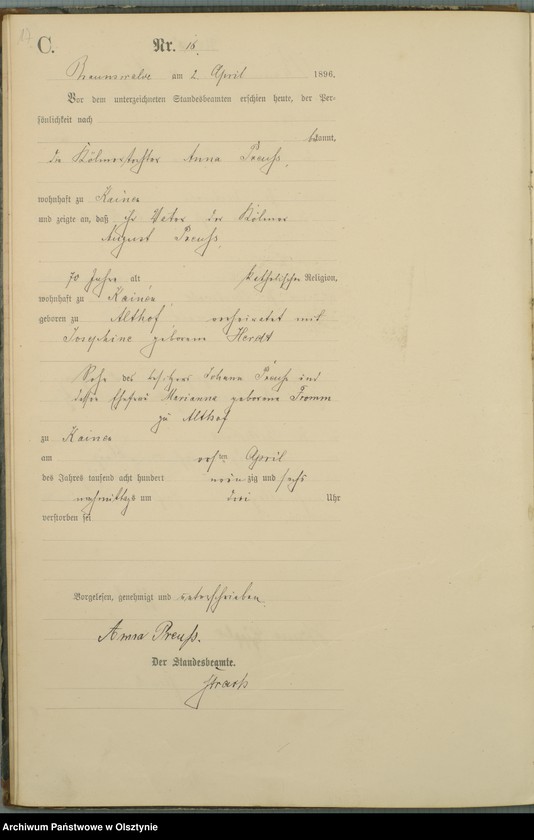 17
C. Nr. 16.
Braunswalde am 2. April 1896.
Vor dem unterzeichneten Standesbeamten erschien heute, der Per-
sönlichkeit nach
bekannt,
die Kölmerstochter Anna Preuß,
wohnhaft zu Kainen
und zeigte an, daß ihr Vater der Kölmer
August Preuß,
70 Jahre alt katholischer Religion,
wohnhaft zu Kainen,
geboren zu Althof verheiratet mit
Josephine geborene Herdt
Sohn des Besitzers Johann Preuß und
dessen Ehefrau Marianna geborene Fromm
zu Althof
zu Kainen
am ersten April
des Jahres tausend acht hundert neunzig und sechs
nachmittags um drei Uhr
verstorben sei
Vorgelesen, genehmigt und unterschrieben.
Anna Preuß.
Der Standesbeamte.
Archiwum Państwowe w Olsztynie